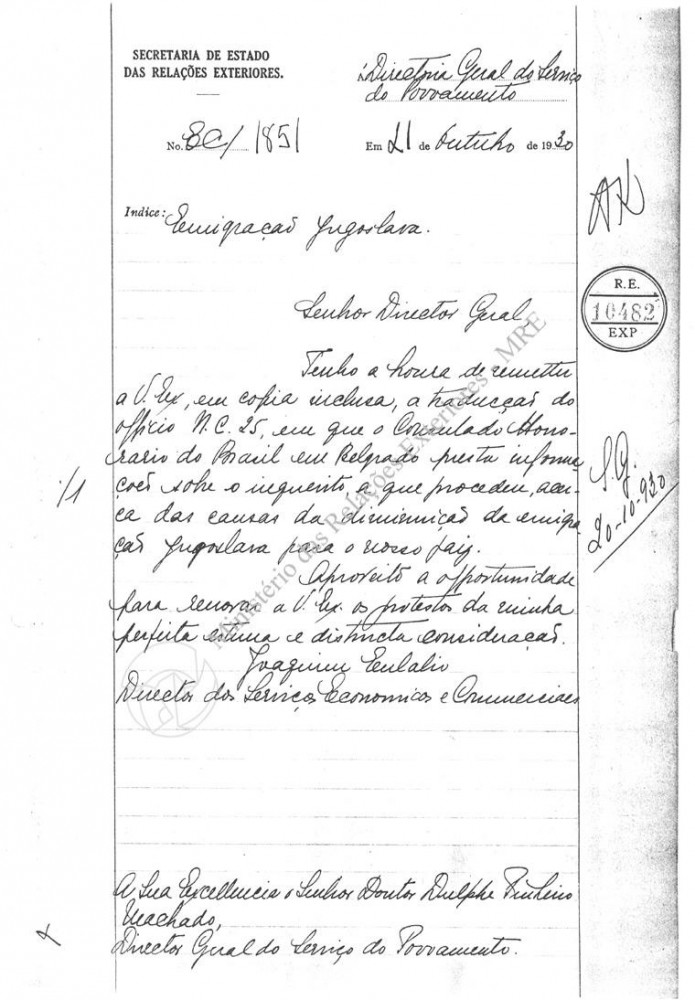 SECRETARIA DE ESTADO
DAS RELAÇÕES EXTERIORES.
á Directoria Geral do Serviço
do Povoamento
No. EC/ 1851
Em 21 de Outubro de 1930
Indice: Emigração Yugoslava.
Senhor Director Geral,
Tenho a honra de remetter
a V. Ex, em copia inclusa, a traducção do
officio N.C. 25, em que o Consulado Hono-
rario do Brasil em Belgrado presta informa
ções sobre o inquerito a que procedeu, acer-
ca das causas da diminuição da emigra
ção Yugoslava para o nosso paiz.
/1
Aproveito a opportunidade
para renovar a V. Ex. os protestos da minha
perfeita estima e distincta consideração.
Joaquim Eulalio
Director dos Serviços Economicos e Commerciaes
A Sua Excellencia o Senhor Doutor Dulphe Pinheiro
Machado,
Director Geral do Serviço do Povoamento.
R.E.
10482
EXP
S.G.
20-10-930
Ministério das Relações Exteriores - MRE